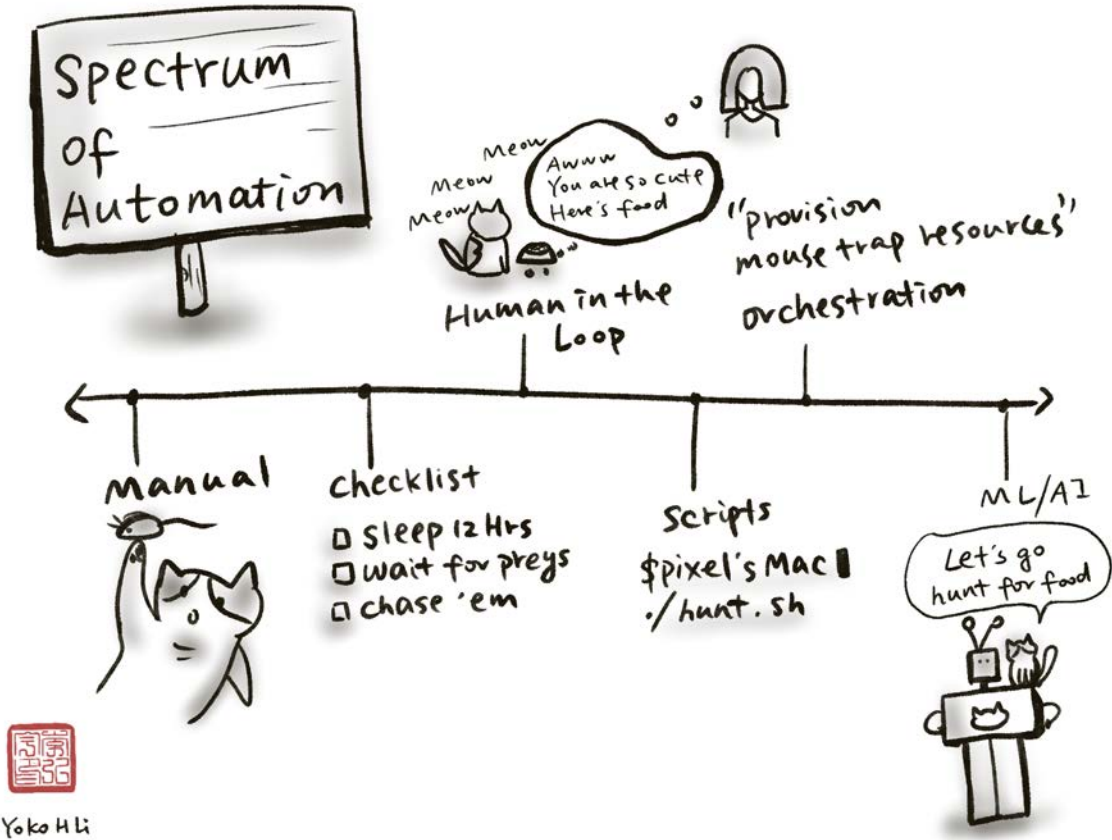 Spectrum
of
Automation
Meow
Meow
Meow
Awww
You are so cute
Here's food
Human in the
Loop
"provision
mouse trap resources"
orchestration
Manual
Checklist
sleep 12 Hrs
wait for preys
chase 'em
Scripts
$pixel's Mac
./hunt.sh
ML/AI
Let's go
hunt for food
Yoko H Li